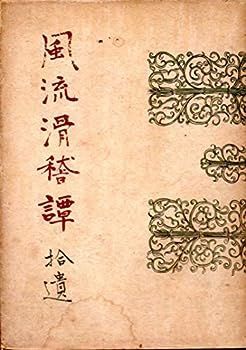 風流滑稽譚
拾遺